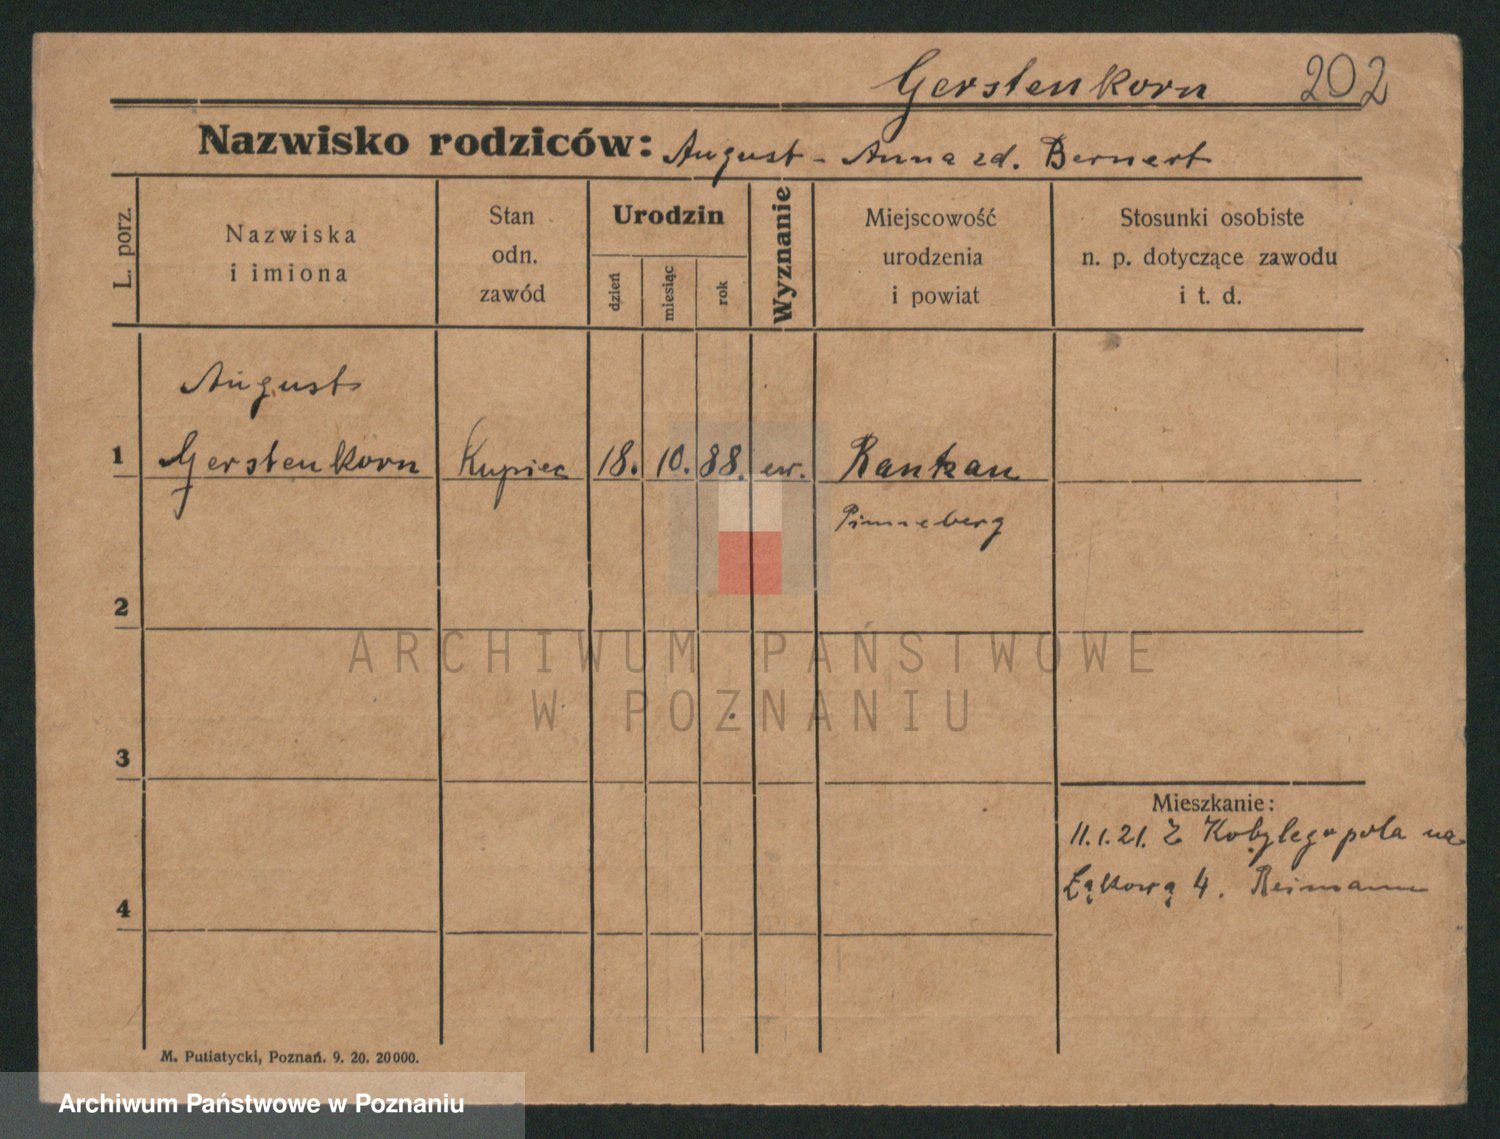 Gerstenkorn 202
Nazwisko rodziców: August - Anna zd. Bernert
L. porz.
Nazwiska
i imiona
Stan
odn.
zawód
Urodzin
dzień
miesiąc
rok
Wyznanie
Miejscowość
urodzenia
i powiat
Stosunki osobiste
n. p. dotyczące zawodu
i t. d.
August
1 Gerstenkorn Kupiec 18. 10. 88. ew. Rantzau
Pinneberg
2
ARCHIWUM PAŃSTWOWE
W POZNANIU
3
Mieszkanie:
11.1.21. Z Kobylegopola na
Łąkową 4. Reimann
4
M. Putiatycki, Poznań. 9. 20. 20000.
Archiwum Państwowe w Poznaniu